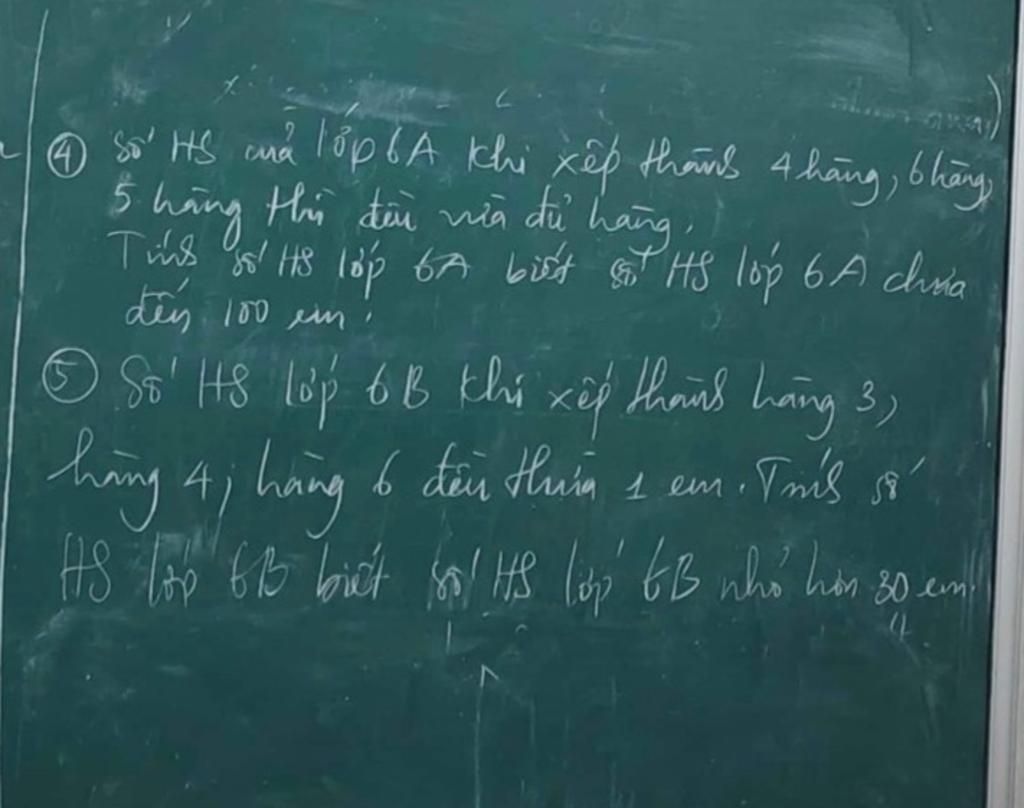 ④ Số HS của lớp 6A khi xếp thành 4 hàng, 6 hàng,
5 hàng thì đều vừa đủ hàng.
Tính số HS lớp 6A biết số HS lớp 6A chưa
đến 100 em.
⑤ Số HS lớp 6B khi xếp thành hàng 3,
hàng 4; hàng 6 đều thừa 1 em. Tính số
HS lớp 6B biết số HS lớp 6B nhỏ hơn 30 em.